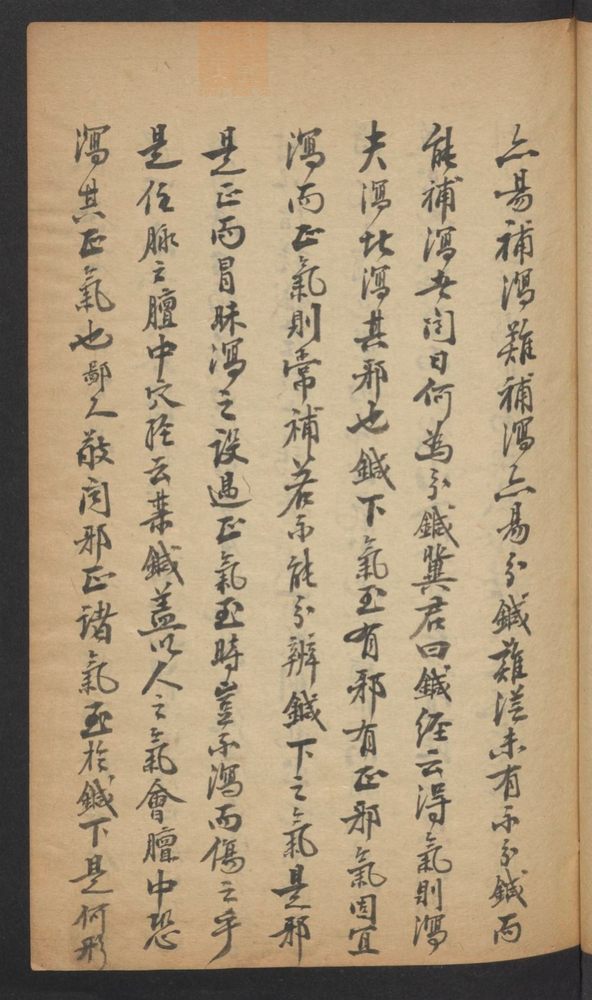 亦易補瀉難補瀉亦易分鍼難從未有不分鍼而
能補瀉者问曰何為分鍼冀君曰鍼經云得氣則瀉
夫瀉此瀉其邪也鍼下氣至有邪有正邪氣固宜
瀉而正氣則常補若不能分辨鍼下之氣是邪
是正而冒昧瀉之設遇正氣至時豈不瀉而傷之乎
是任脉之膻中穴經云禁鍼蓋以人之氣會膻中恐
瀉其正氣也鄙人敬问邪正諸氣至於鍼下是何形